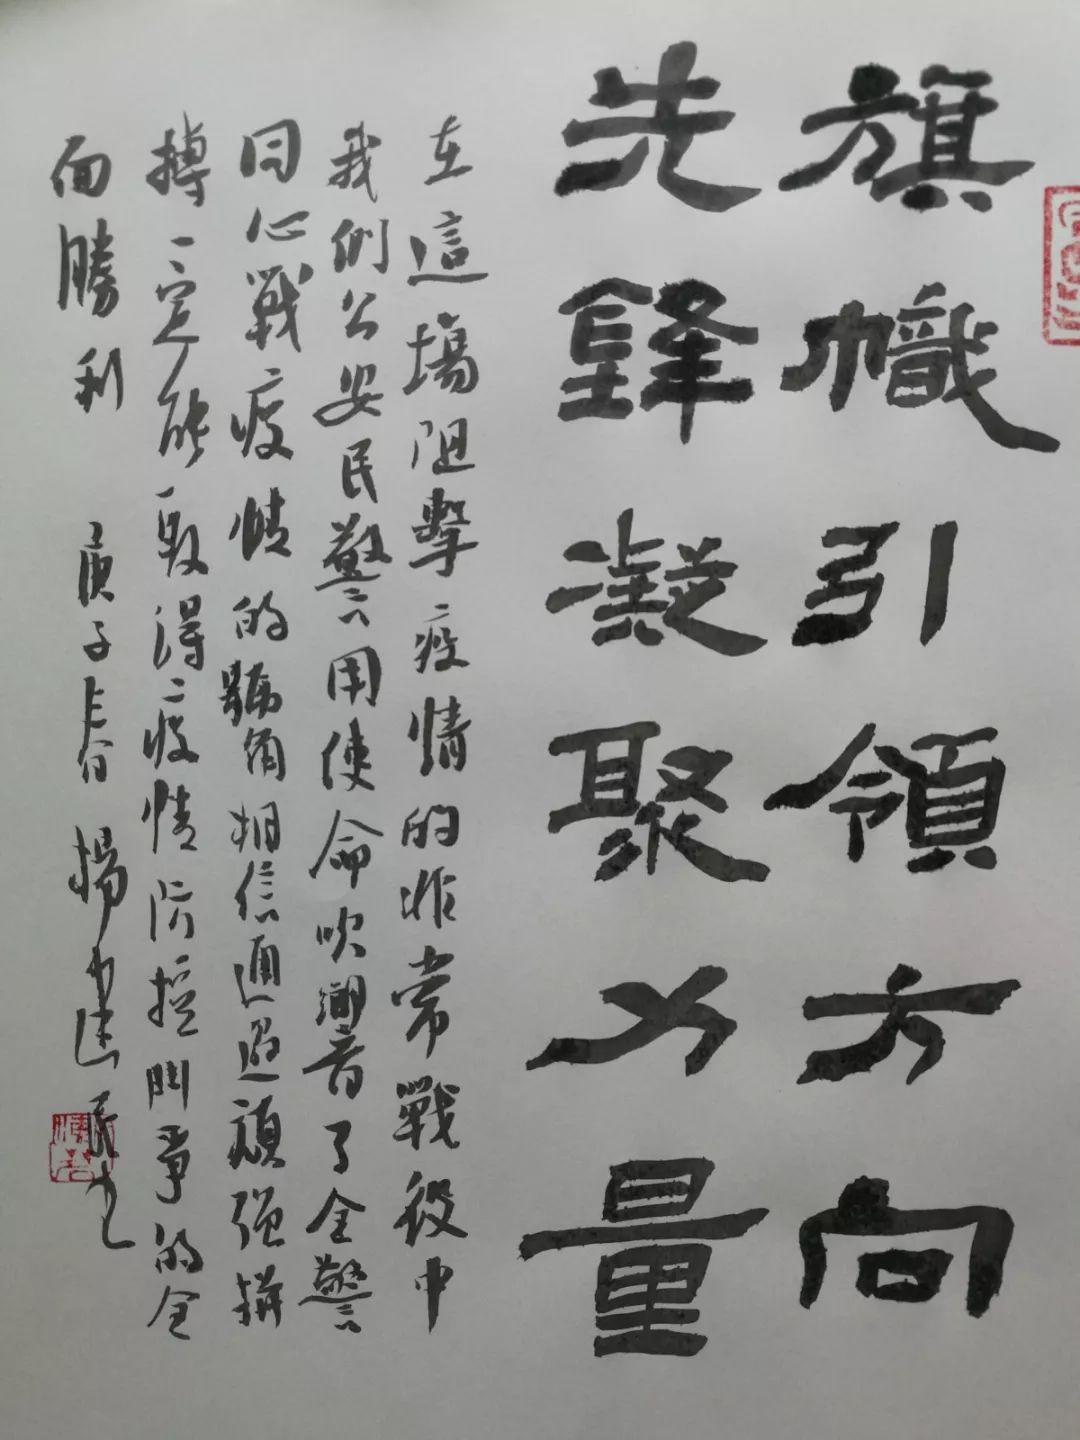 旗幟引領方向
先鋒凝聚力量
在這場阻擊疫情的非常戰役中
我們公安民警用使命吹響了全警
同心戰疫情的號角相信通過頑强拼
搏一定能取得疫情防控鬥爭的全
面勝利
庚子春 楊建